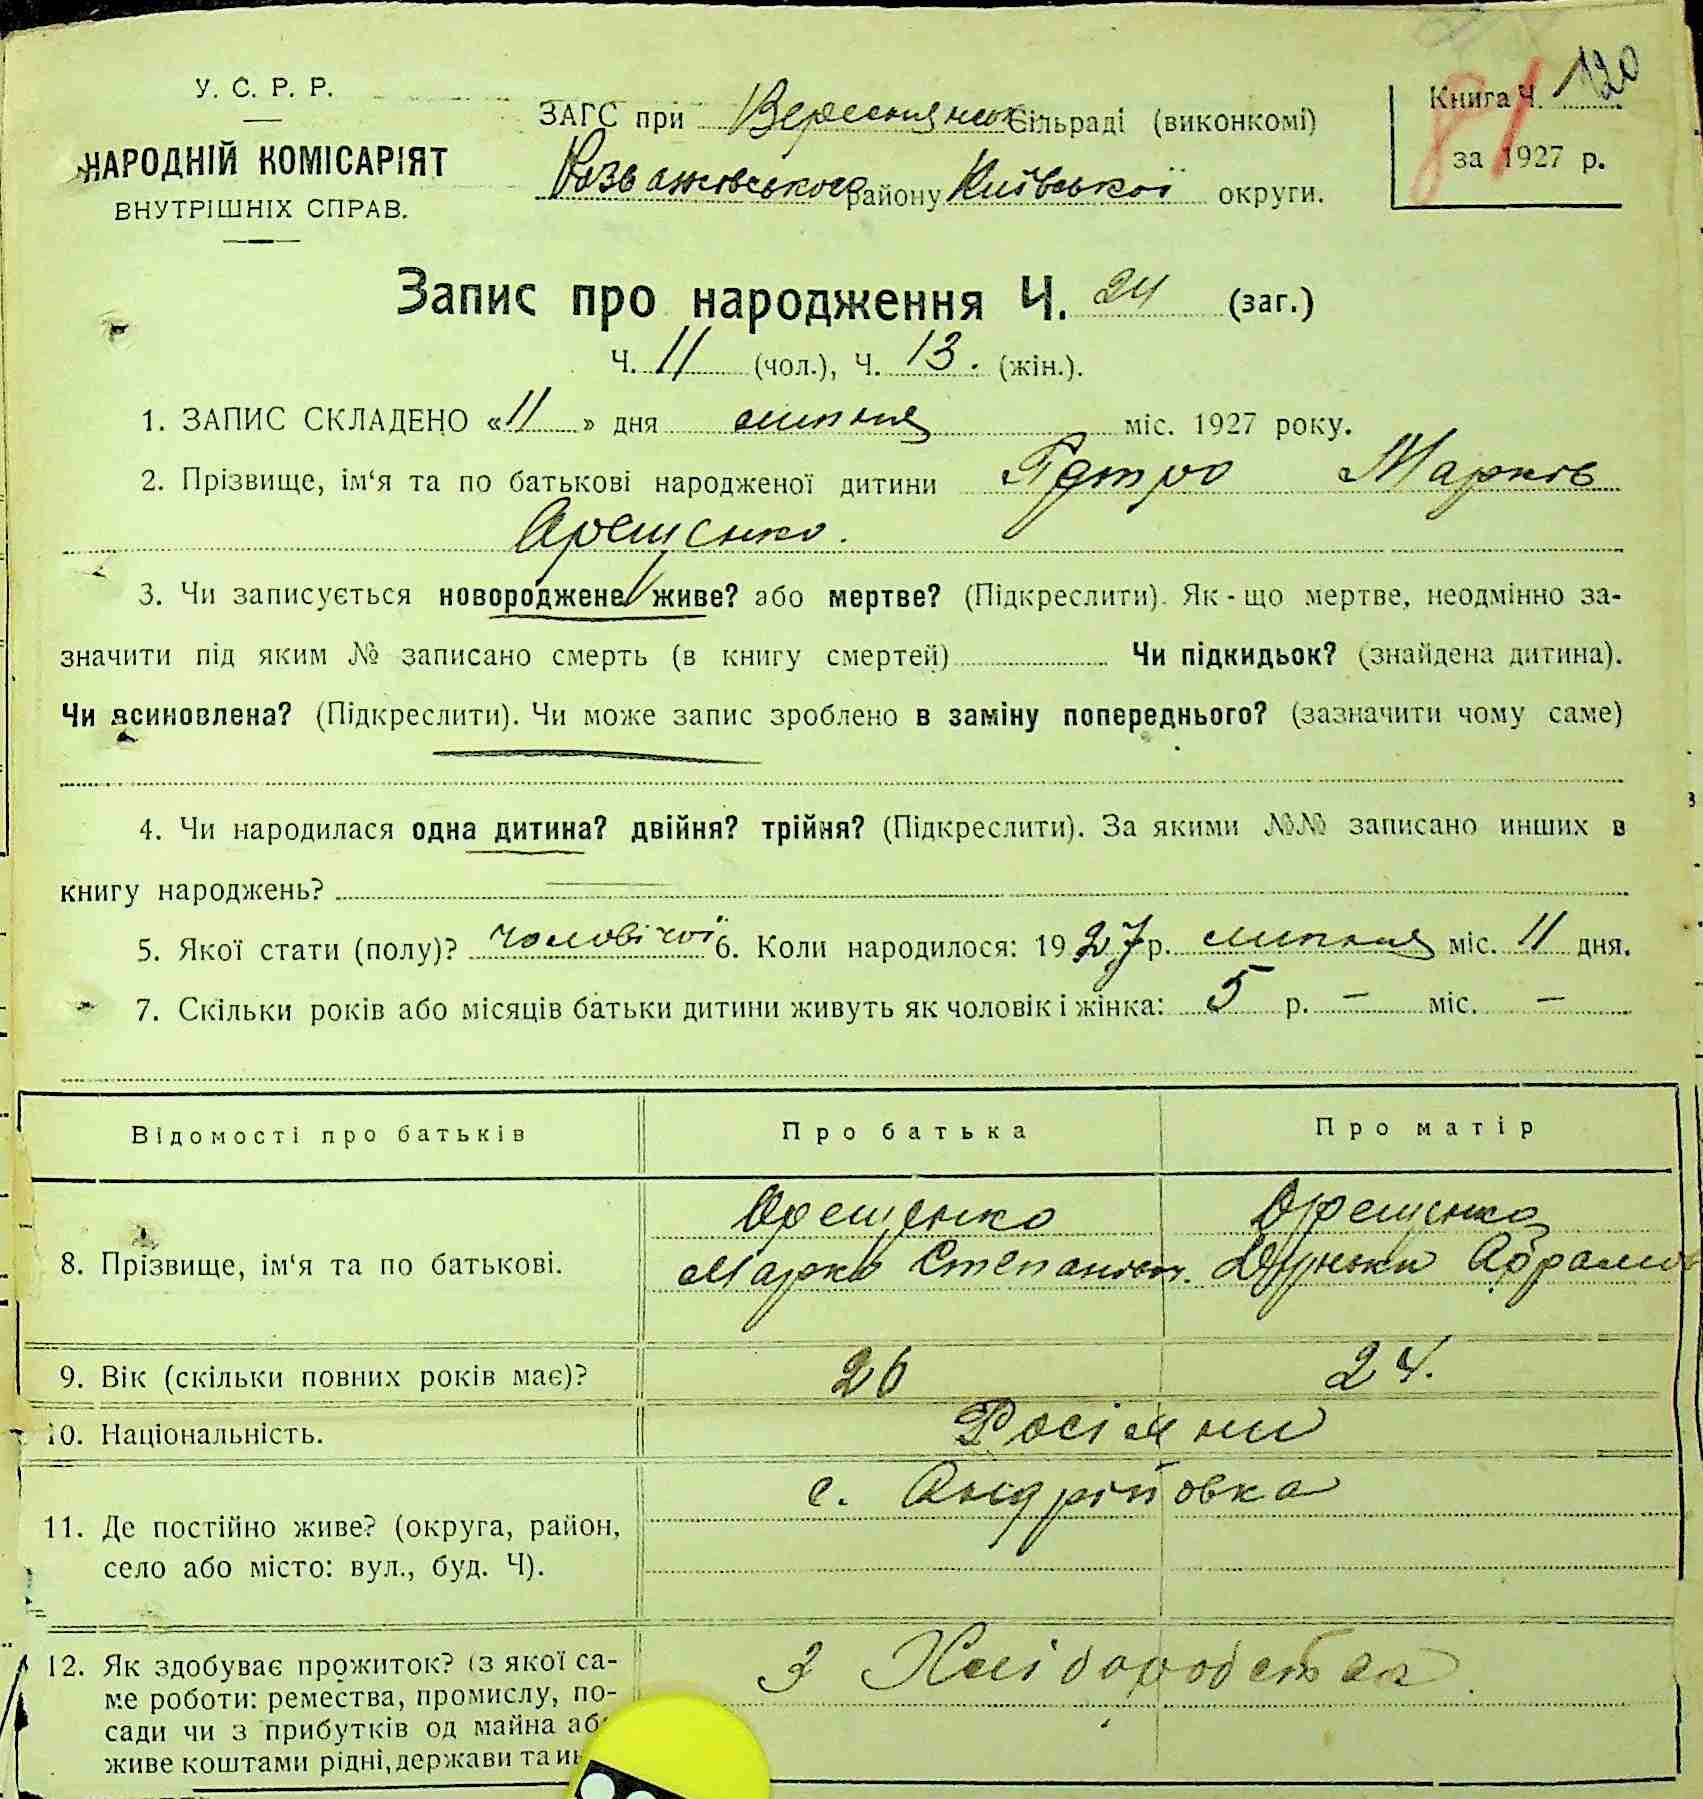 120
У. С. Р. Р.
НАРОДНІЙ КОМІСАРІЯТ
ВНУТРІШНІХ СПРАВ.
ЗАГС при Вересня Сільраді (виконкомі)
Розважівського району Київської округи.
Книга Ч.
81
за 1927 р.
Запис про народження Ч. 24 (заг.)
Ч. 11 (чол.), Ч. 13. (жін.).
1. ЗАПИС СКЛАДЕНО «11» дня липня міс. 1927 року.
2. Прізвище, ім‘я та по батькові народженої дитини Петро Марків
Орещенко.
3. Чи записується новороджене живе? або мертве? (Підкреслити). Як-що мертве, неодмінно за-
значити під яким № записано смерть (в книгу смертей) Чи підкидьок? (знайдена дитина).
Чи всиновлена? (Підкреслити). Чи може запис зроблено в заміну попереднього? (зазначити чому саме)
4. Чи народилася одна дитина? двійня? трійня? (Підкреслити). За якими №№ записано инших в
книгу народжень?
5. Якої стати (полу)? чоловічої 6. Коли народилося: 1927 р. липня міс. 11 дня.
7. Скільки років або місяців батьки дитини живуть як чоловік і жінка: 5 р. — міс. —
Відомості про батьків Про батька Про матір
8. Прізвище, ім‘я та по батькові. Орещенко Орещенко
Марко Степанов. Дуньки Абрамов
9. Вік (скільки повних років має)? 26 24.
10. Національність. Росіяни
с. Андрійовка
11. Де постійно живе? (округа, район,
село або місто: вул., буд. Ч).
12. Як здобуває прожиток? (з якої са- З Хліборобства.
ме роботи: ремества, промислу, по-
сади чи з прибутків од майна або
живе коштами рідні, держави та ин